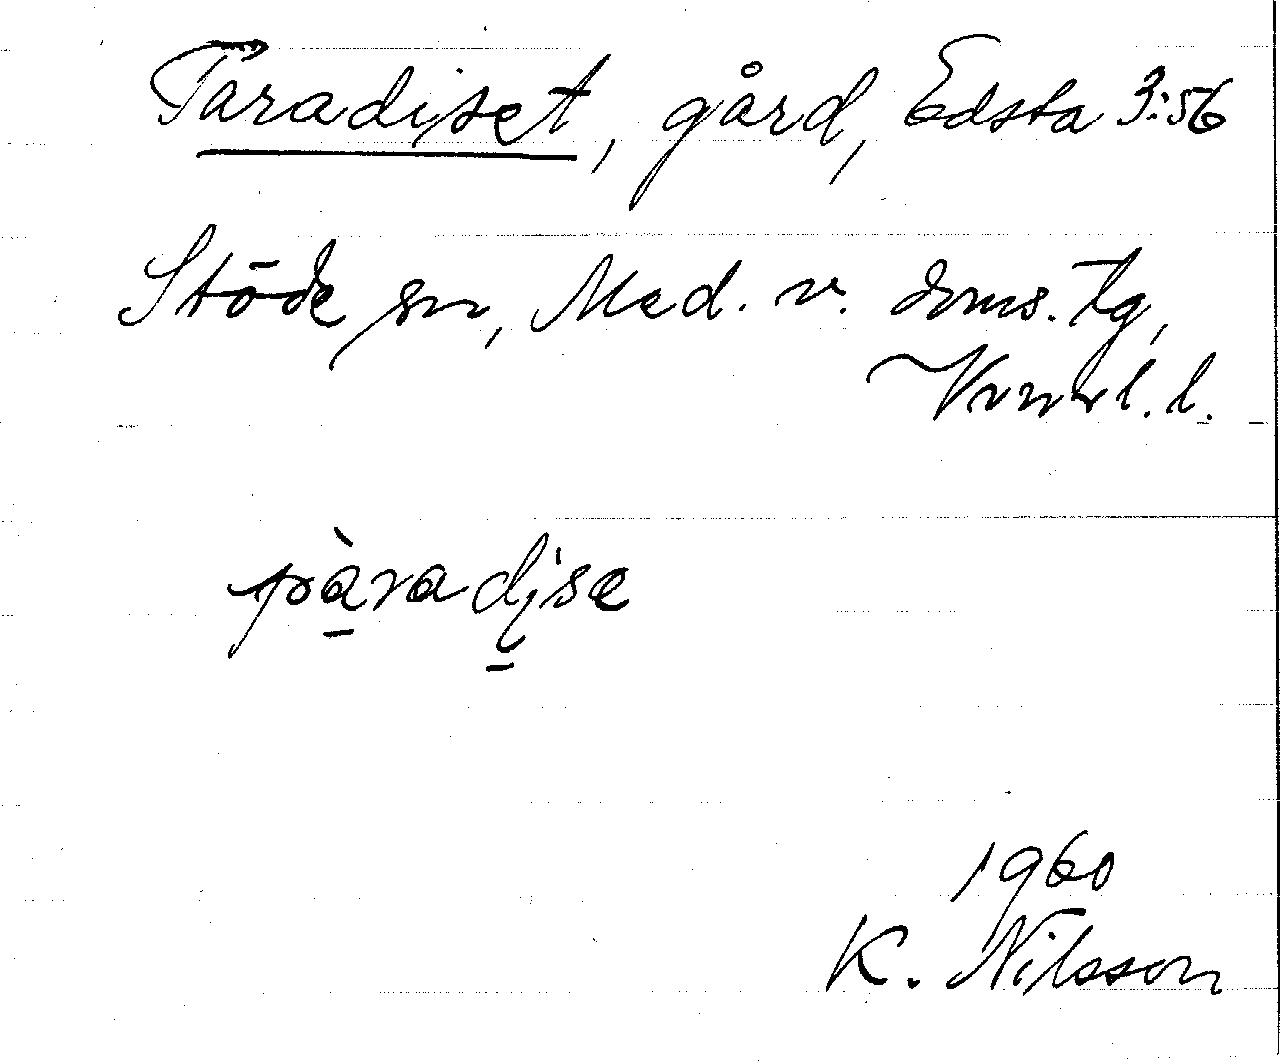 Paradiset, gård, Edsta 3:56
Stöde sn, Med. v. doms. tg,
Vnrl. l.
pàradise
1960
K. Nilsson